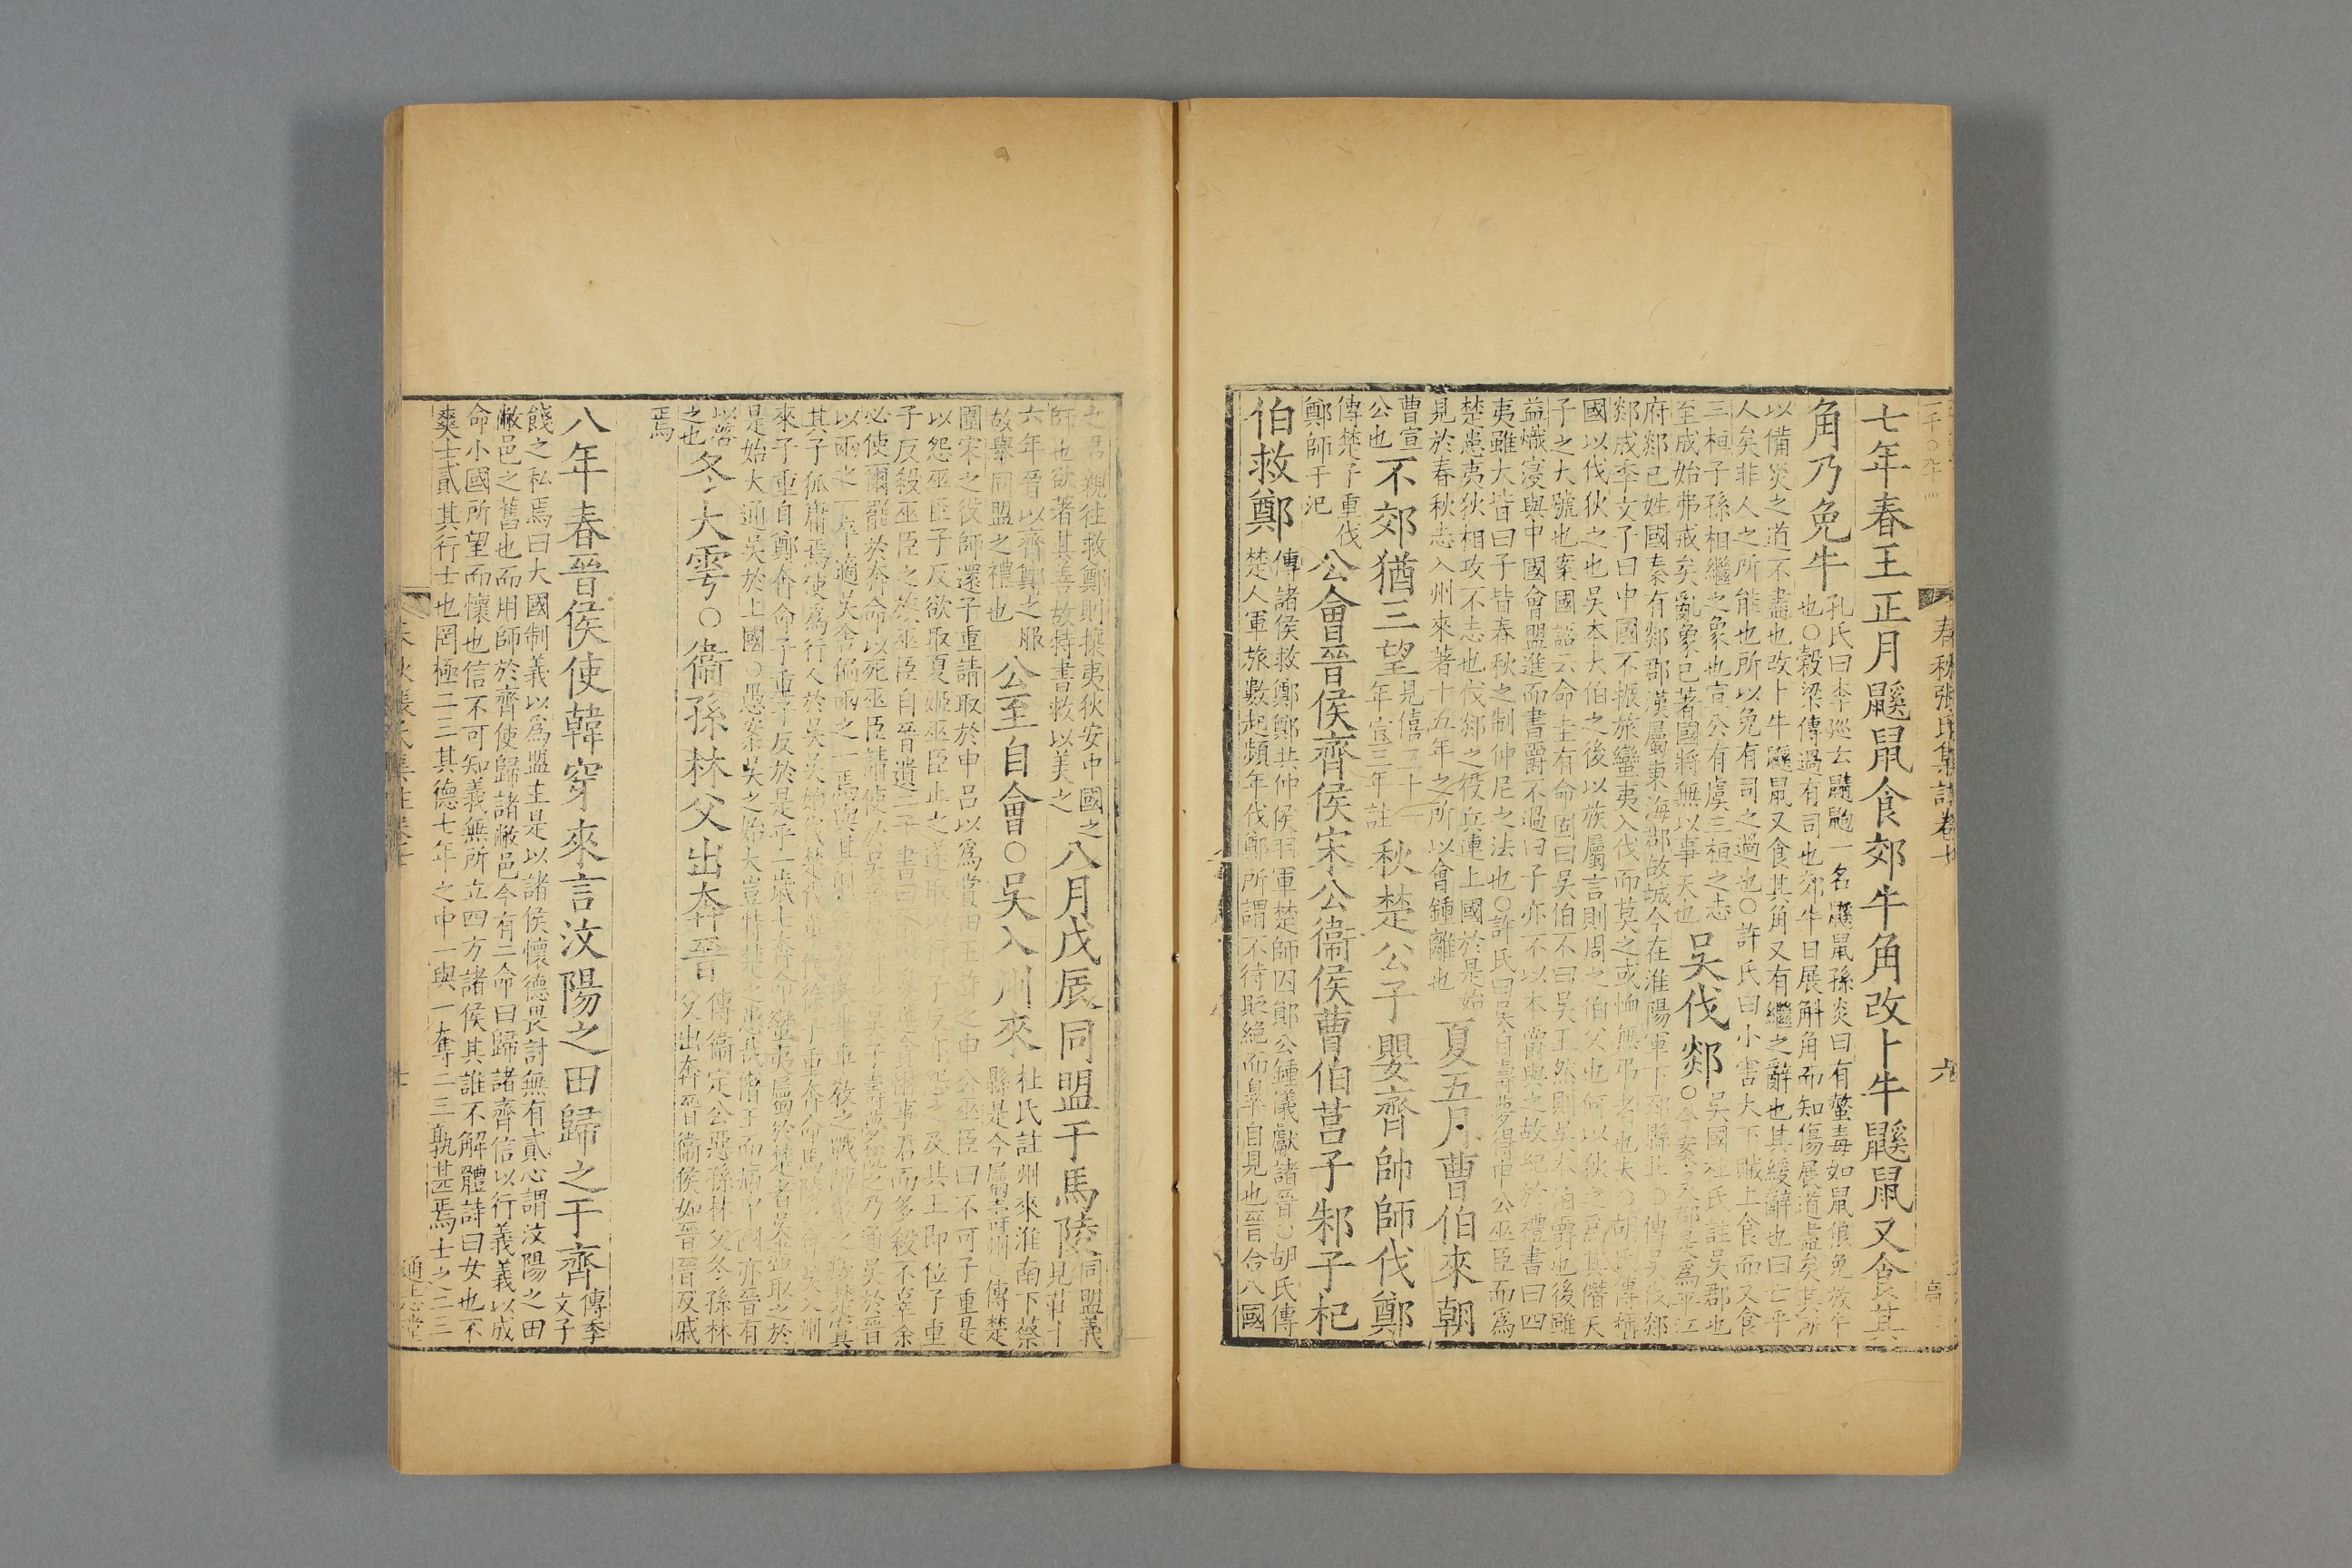 七年春王正月鼷鼠食郊牛角改卜牛鼷鼠又食其
角乃免牛
孔氏曰李巡云鼱鼩一名鼷鼠孫炎曰有螫毒如鼠狼免放牛
也○穀梁傳過有司也郊牛日展斛角而知傷展道盡矣其所
以備災之道不盡也改卜牛鼷鼠又食其角又有繼之辭也其緩辭也曰亡乎
人矣非人之所能也所以免有司之過也○許氏曰小害大下賊上食而又食
三桓子孫相繼之象也宣公有虞三桓之志
至成始弗戒矣亂象已著國將無以事天也
吳伐郯
吳國杜氏註吳郡也
○今案今
府郯已姓國秦有郯郡漢屬東海郡故城今在淮陽軍下邳縣北○傳吳伐郯
郯成季文子曰中國不振旅蠻夷入伐而莫之或恤無弔者也夫○胡氏傳稱
國以伐狄之也吳本大伯之後以族屬言則周之伯父也何以狄之爲其僭天
子之大號也案國語云命圭有命固曰吳伯不曰吳王然則吳本伯爵也後雖
益熾寖與中國會盟進而書爵不過曰子亦不以本爵與之故紀於禮書曰四
夷雖大皆曰子皆春秋之制仲尼之法也○許氏曰吳自壽夢得申公巫臣而爲
楚患夷狄相攻不志也伐郯之役兵連上國於是始
見於春秋志入州來著十五年之所以會鍾離也
夏五月曹伯來朝
曹宣
公也
不郊猶三望
見僖三十一
年宣三年註
秋楚公子嬰齊帥師伐鄭
傳楚子重伐
鄭師于汜
公會晉侯齊侯宋公衞侯曹伯莒子邾子杞
伯救鄭
傳諸侯救鄭鄭共仲侯羽軍楚師囚鄖公鍾儀獻諸晉○胡氏傳
楚人軍旅數起頻年伐鄭所謂不待貶絕而罪自見也晉合八國
之君親往救鄭則攘夷狄安中國之
師也欲著其善故特書救以美之
八月戊辰同盟于馬陵
同盟義
見莊十
六年晉以齊鄭之服
故舉同盟之禮也
公至自會○吳入州來
杜氏註州來淮南下蔡
縣是今屬壽州○傳楚
圍宋之役師還子重請取於申呂以爲賞田王許之申公巫臣曰不可子重是
以怨巫臣子反欲取夏姬巫臣止之遂取以行子反亦怨之及其王即位子重
子反殺巫臣之族巫臣自晉遺二子書曰事君而多殺不辜余
必使爾罷於奔命以死巫臣請使於吳晉吳子壽夢說之乃通吳於晉
以兩之一卒適吳舍偏兩之一焉與其射御教吳乘車教之戰陳教之叛楚寘
其子狐庸焉使爲行人於吳吳始伐楚伐巢伐徐子重奔命馬陵之會吳入州
來子重自鄭奔命子重子反於是乎一歲七奔命蠻夷屬於楚者吳盡取之於
是始大通吳於上國○愚案吳之始大豈特楚之患哉僭王而病中國亦晉有
以啓
之也
冬大雩○衞孫林父出奔晉
傳衞定公惡孫林父冬孫林
父出奔晉衞侯如晉晉反戚
焉
八年春晉侯使韓穿來言汶陽之田歸之于齊
傳季
文子
餞之私焉曰大國制義以爲盟主是以諸侯懷德畏討無有貳心謂汶陽之田
敝邑之舊也而用師於齊使歸諸敝邑今有二命曰歸諸齊信以行義義以成
命小國所望而懷也信不可知義無所立四方諸侯其誰不解體詩曰女也不
爽士貳其行士也罔極二三其德七年之中一與一奪二三孰甚焉士之二三
春秋張氏集註卷七
六
通志堂